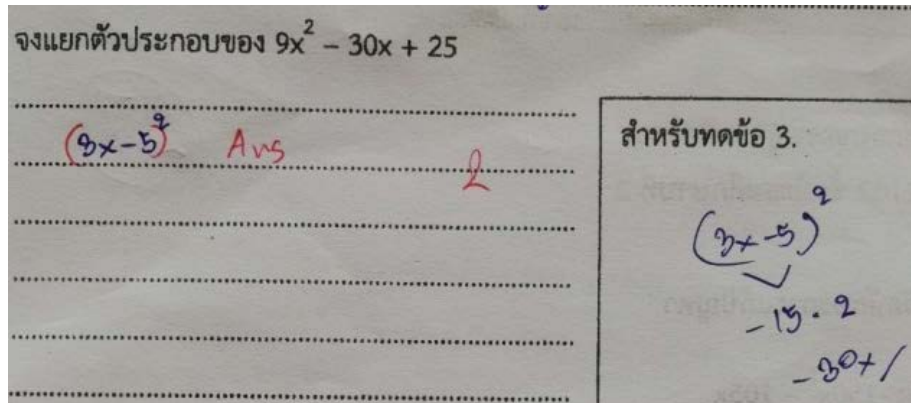 จงแยกตัวประกอบของ 9x² – 30x + 25
(3x-5)² Ans
2
สำหรับทดข้อ 3.
(3x-5)²
-15 · 2
-30x /